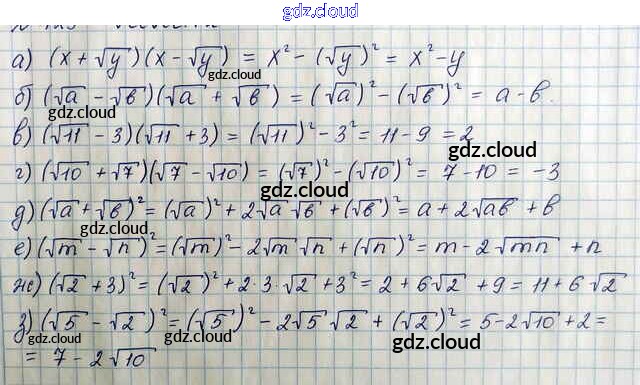 gdz.cloud
а) (x + √y)(x - √y) = x² - (√y)² = x² - y
gdz.cloud
б) (√a - √b)(√a + √b) = (√a)² - (√b)² = a - b.
gdz.cloud
в) (√11 - 3)(√11 + 3) = (√11)² - 3² = 11 - 9 = 2
gdz.cloud
г) (√10 + √7)(√7 - √10) = (√7)² - (√10)² = 7 - 10 = -3
gdz.cloud
д) (√a + √b)² = (√a)² + 2√a√b + (√b)² = a + 2√ab + b
gdz.cloud
е) (√m - √n)² = (√m)² - 2√m√n + (√n)² = m - 2√mn + n
gdz.cloud
ж) (√2 + 3)² = (√2)² + 2·3·√2 + 3² = 2 + 6√2 + 9 = 11 + 6√2
gdz.cloud
з) (√5 - √2)² = (√5)² - 2√5√2 + (√2)² = 5 - 2√10 + 2 =
gdz.cloud gdz.cloud
= 7 - 2√10